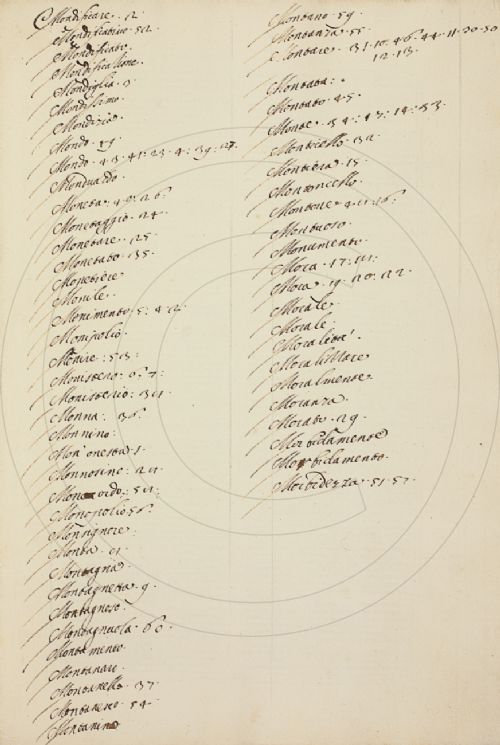 Mondificare. 12.
Mondificativo. 52.
Mondificato.
Mondificazione.
Mondiglia. 9.
Mondissimo.
Mondizia.
Mondo. 49.
Mondo. 43. 41. 23. 4. 39. 27.
Mondualdo.
Moneta. 4. 9. 26.
Monetaggio. 24.
Monetare. 25.
Monetato. 35.
Monetiere.
Monile.
Monimento. 5. 4. 12.
Monipolio.
Monire. 53.
Monistero. 6. 7.
Monisterio. 31.
Monna. 36.
Monnino.
Mon'onesta. 1.
Monnosino. 21.
Monocordo. 51.
Monopolio. 56.
Monsignore.
Monta. 21.
Montagna.
Montagnetta. 9.
Montagnoso.
Montagnuola. 60.
Montamento.
Montanaro.
Montanello. 37.
Montanesco. 54.
Montanino
Montano. 59.
Montanza. 55.
Montare. 31. 10. 46. 44. 11. 20. 50
12. 13.
Montata.
Montato. 45.
Monte. 34. 17. 14. 33.
Monticello. 32.
Montiera. 15.
Montoncello.
Montone. 4. 11. 16.
Montuoso.
Monumento.
Mora. 17. 41.
Mora. 19. 20. 22.
Morale.
Morale.
Moralità.
Moralizzare
Moralmente.
Moranza.
Morato. 29.
Morbidamente
Morbidamento.
Morbidezza. 51. 57.